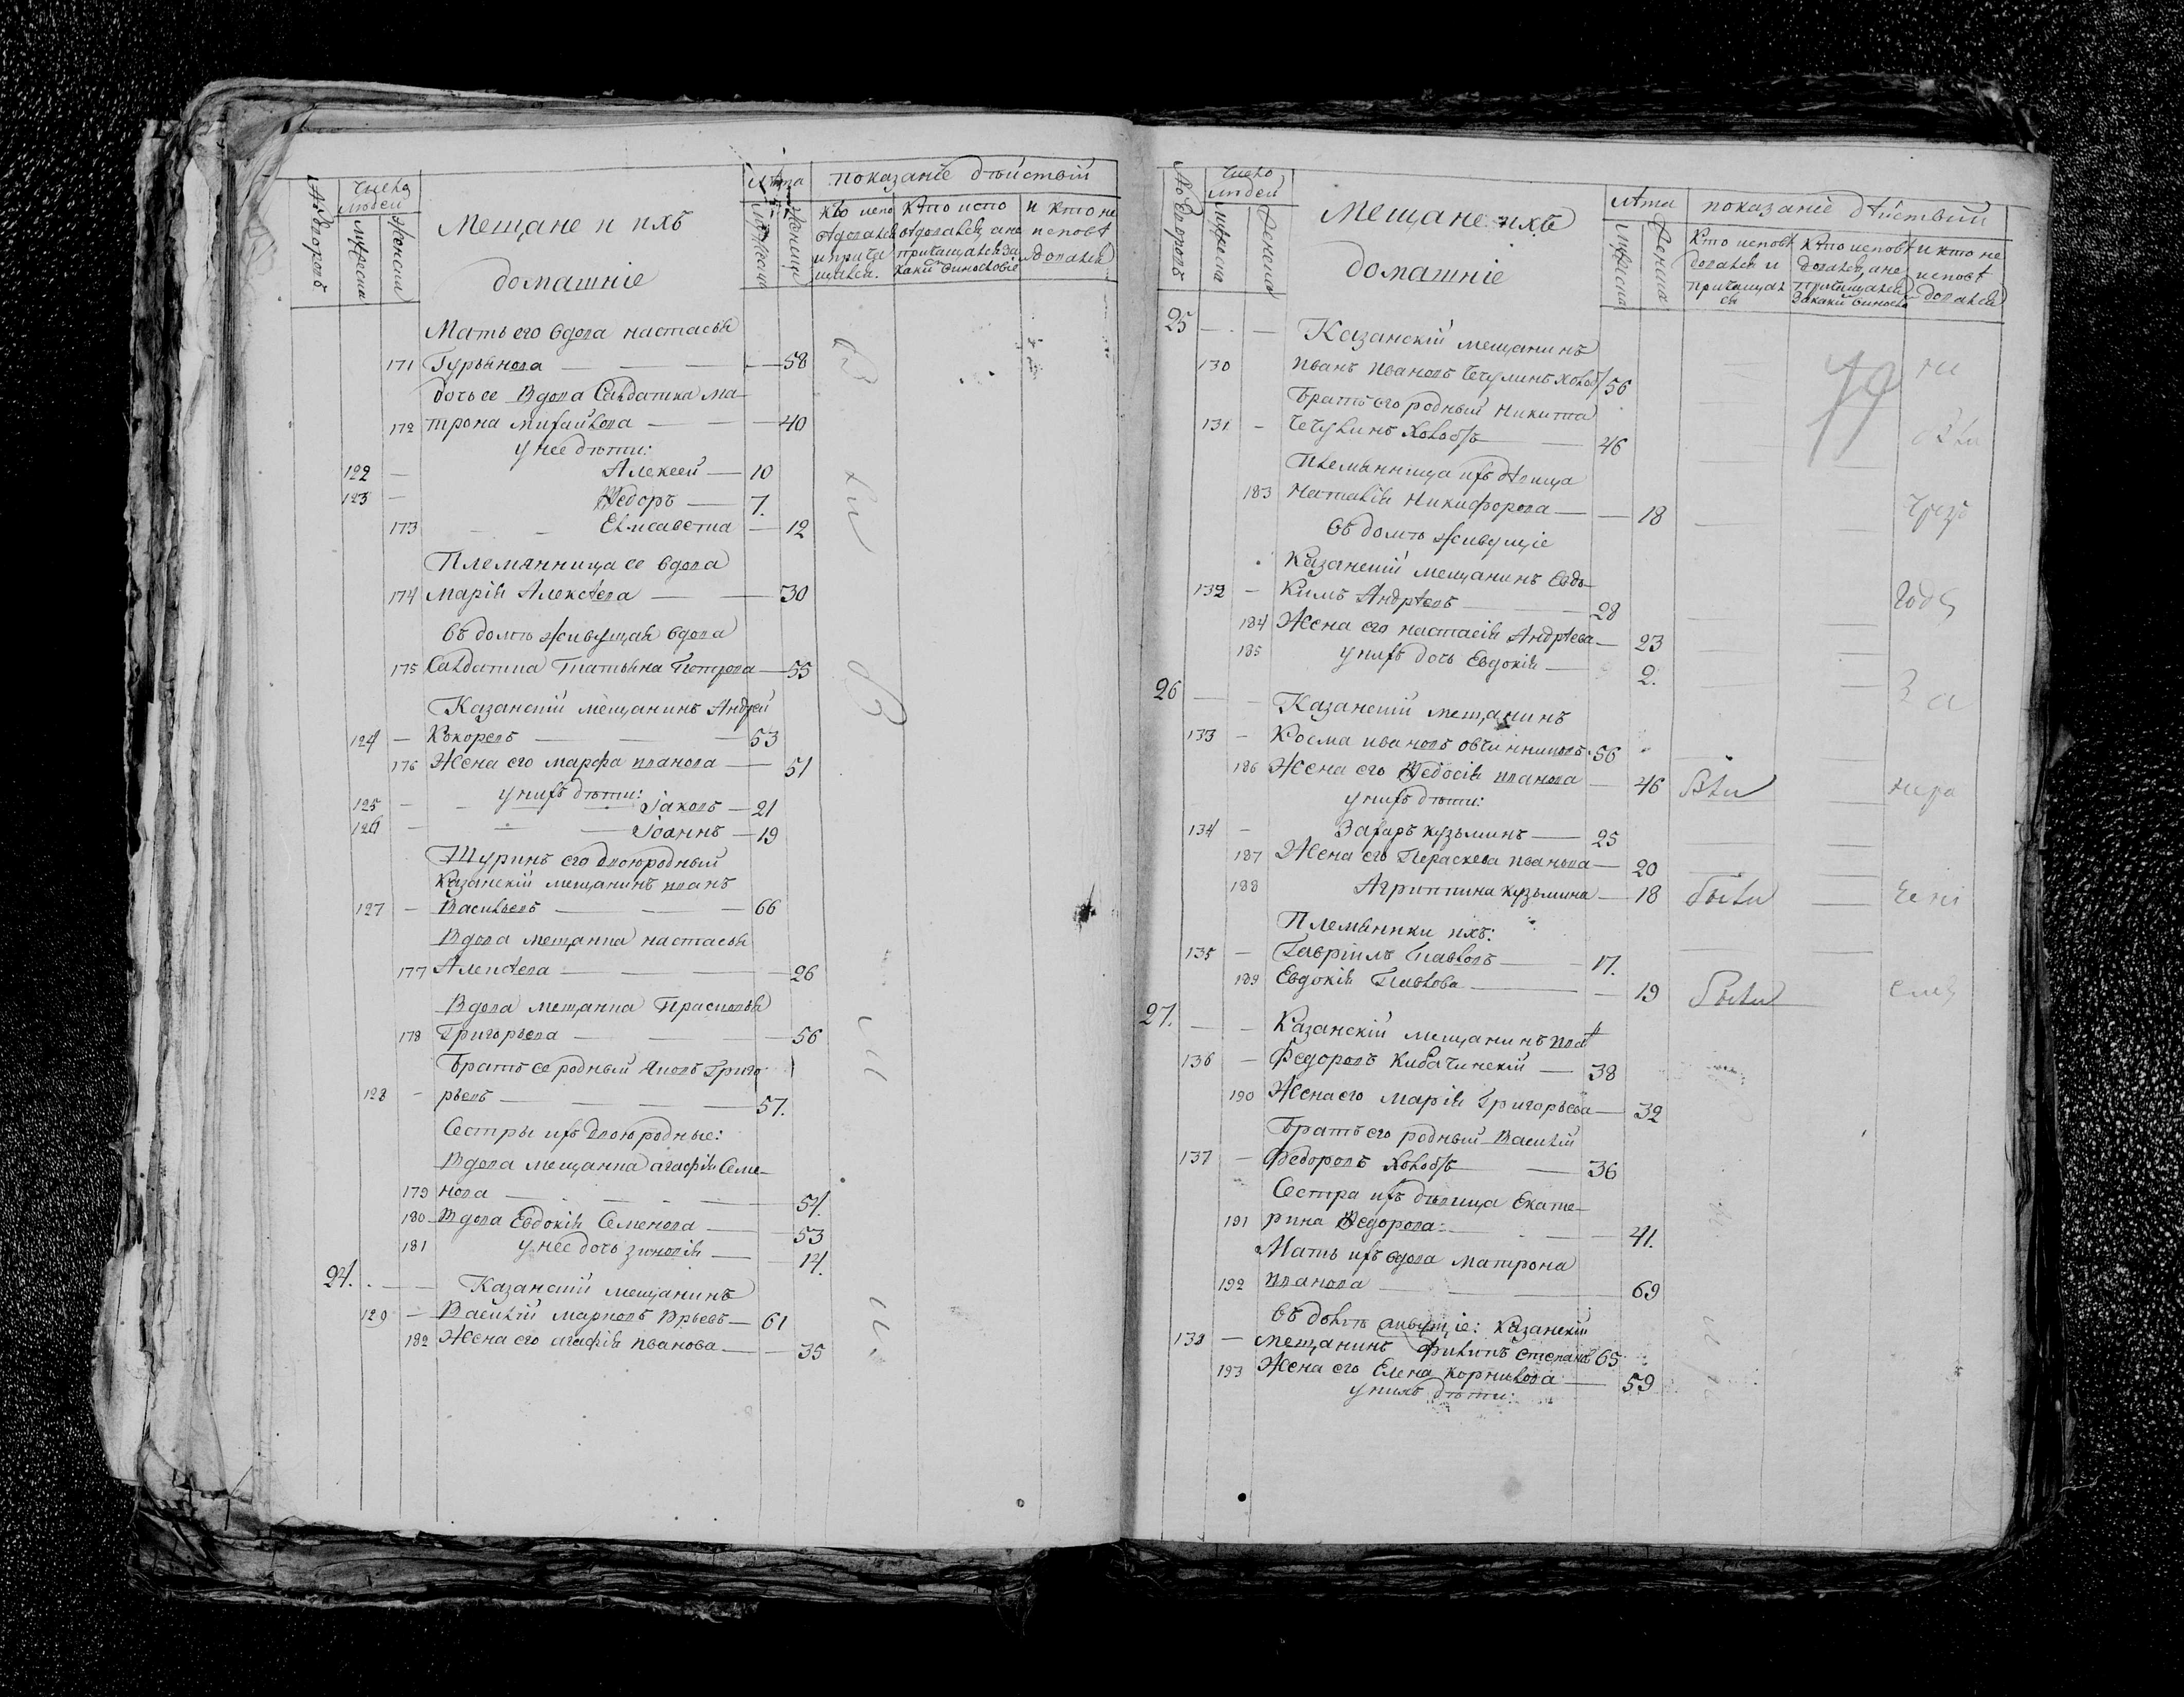 № дворовъ
Число людей
Мужеска
Женска
Мещане и ихъ
домашніе
Лѣта
Мужеска
Женска
показаніе дѣйствій
Кто испо
вѣдался
и прича
щался.
Кто испо
вѣдался, а не
причащался за
какимъ виносл овіе
и кто не
исповѣ
дался
Мать его вдова настасья
171 Гурьянова 58
дочь ее Вдова Салдатка Ма-
172 трона михайлова 40
у нее дѣти:
122 Алексей 10
123 Ѳедоръ 7.
173 Елисавета 12
Племянница ее вдова
174 марія Алексѣева 30
въ домѣ живущая вдова
175 Салдатка Татьяна Петрова 55
Казанскій мещанинъ Андрей
124 Кокоревъ 53
176 Жена его марфа иванова 51
у нихъ дѣти:
125 Іаковъ 21
126 Іоаннъ 19
Шуринъ его двоюродный
Казанскій мещанинъ иванъ
127 Васильевъ 66
Вдова мещанка настасья
177 Алексѣева 26
Вдова мещанка Прасковья
178 Григорьева 56
Братъ ее родный Яковъ Григо
128 рьевъ 57.
Сестры ихъ двоюродные:
Вдова мещанка агафія Семе-
179 нова 54.
180 Вдова Евдокія Семенова 53
181 у нее дочь зиновія 14.
24. Казанскій мещанинъ
129 Василій марковъ Юрьевъ 61
182 Жена его агафія иванова 35
№ дворовъ
Число людей
Мужеска
Женска
Мещане ихъ
домашніе
Лѣта
Мужеска
Женска
показаніе дѣйствій
Кто исповѣ
дался и
причащал
ся
Кто исповѣ
дался, а не
причащался
за какимъ виносло
и кто не
исповѣ
дался
25 Казанскій мещанинъ
130 иванъ ивановъ Чечулинъ холос 56
Братъ его родный никита
131 Чечулинъ холостъ 46
племянница ихъ дѣвица
183 наталія никифорова 18
въ домѣ живущіе
Казанскій мещанинъ Евдо-
132 кимъ Андрѣевъ 28
184 Жена его настасія Андрѣева 23
185 у нихъ дочь Евдокія 2.
26 Казанскій мещанинъ
133 Косма ивановъ овчинниковъ 56
186 Жена его Ѳедосія иванова 46 были
у нихъ дѣти:
134 Захаръ кузьминъ 25
187 Жена его Параскева иванова 20
188 Агриппина кузьмина 18 были
Племянники ихъ:
135 Гавріилъ Павловъ 17.
189 Евдокія Павлова 19 были
27. Казанскій мещанинъ
136 Ѳедоровъ Кибачинскій 38
190 Жена его марія Григорьева 32
Братъ его родный Василій
137 Ѳедоровъ холостъ 36
Сестра ихъ дѣвица Екате-
191 рина Ѳедорова 41.
Мать ихъ вдова матрона
192 иванова 69
въ домѣ живущіе: казанскій
138 мещанинъ филипъ степановъ 65
193 Жена его Елена корнилова 59
у нихъ дѣти: